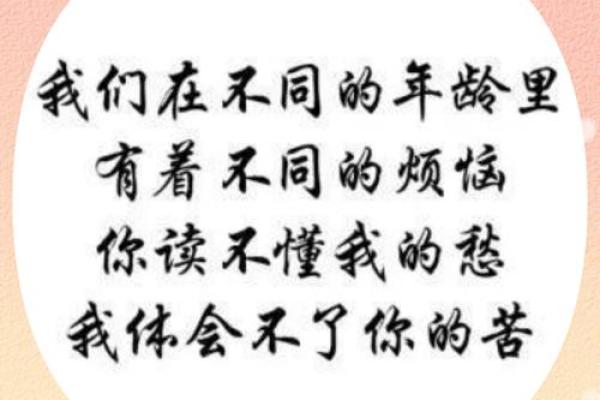 我们在不同的年龄里
有着不同的烦恼
你读不懂我的愁
我体会不了你的苦